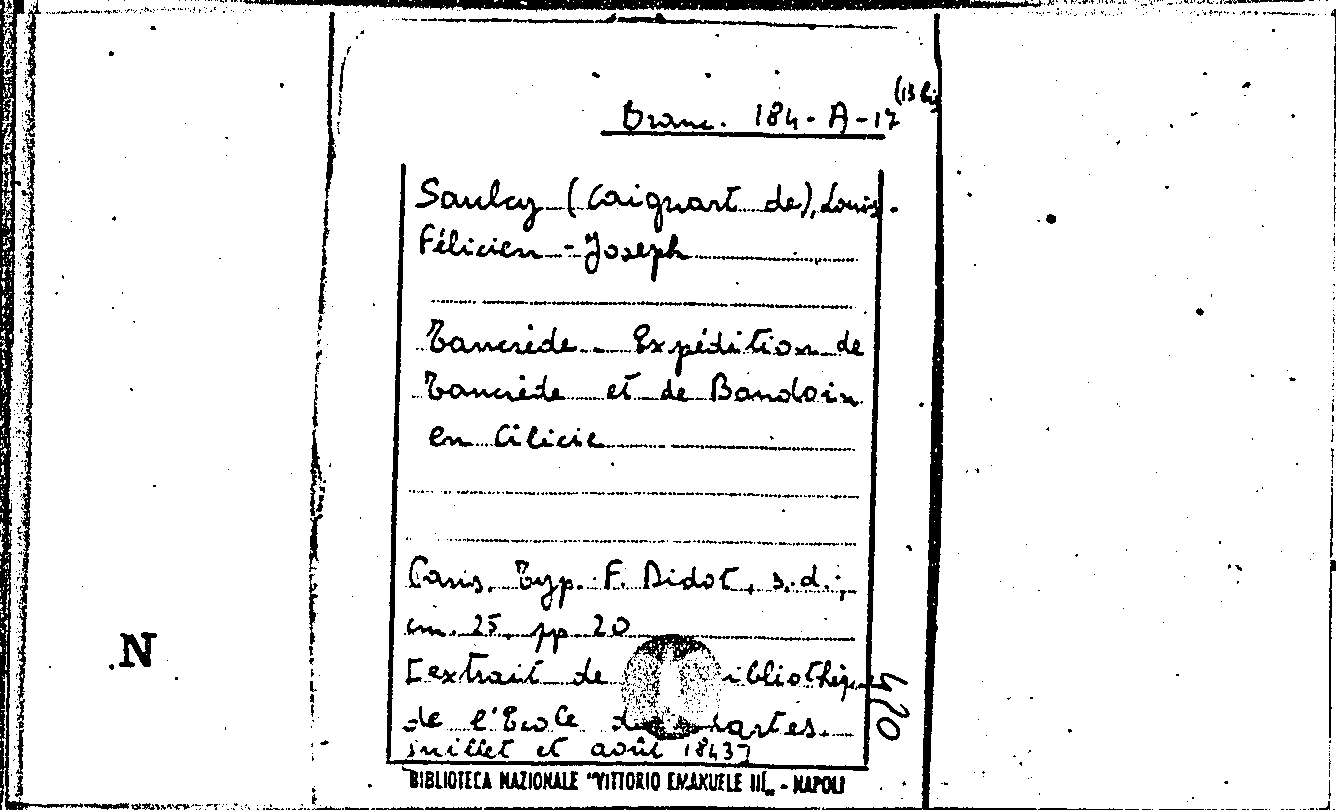 (13 bis)
Branc. 184-A-17
Saulcy (Caignart de), Louis-
Félicien-Joseph
Tancrède. Expédition de
Tancrède et de Baudoin
en Cilicie
Paris, Typ. F. Didot, s.d.;
cm. 25, pp 20
[extrait de ibliothèque
de l'Ecole d artes.
juillet et août 1843]
BIBLIOTECA NAZIONALE "VITTORIO EMANUELE III„ - NAPOLI
N